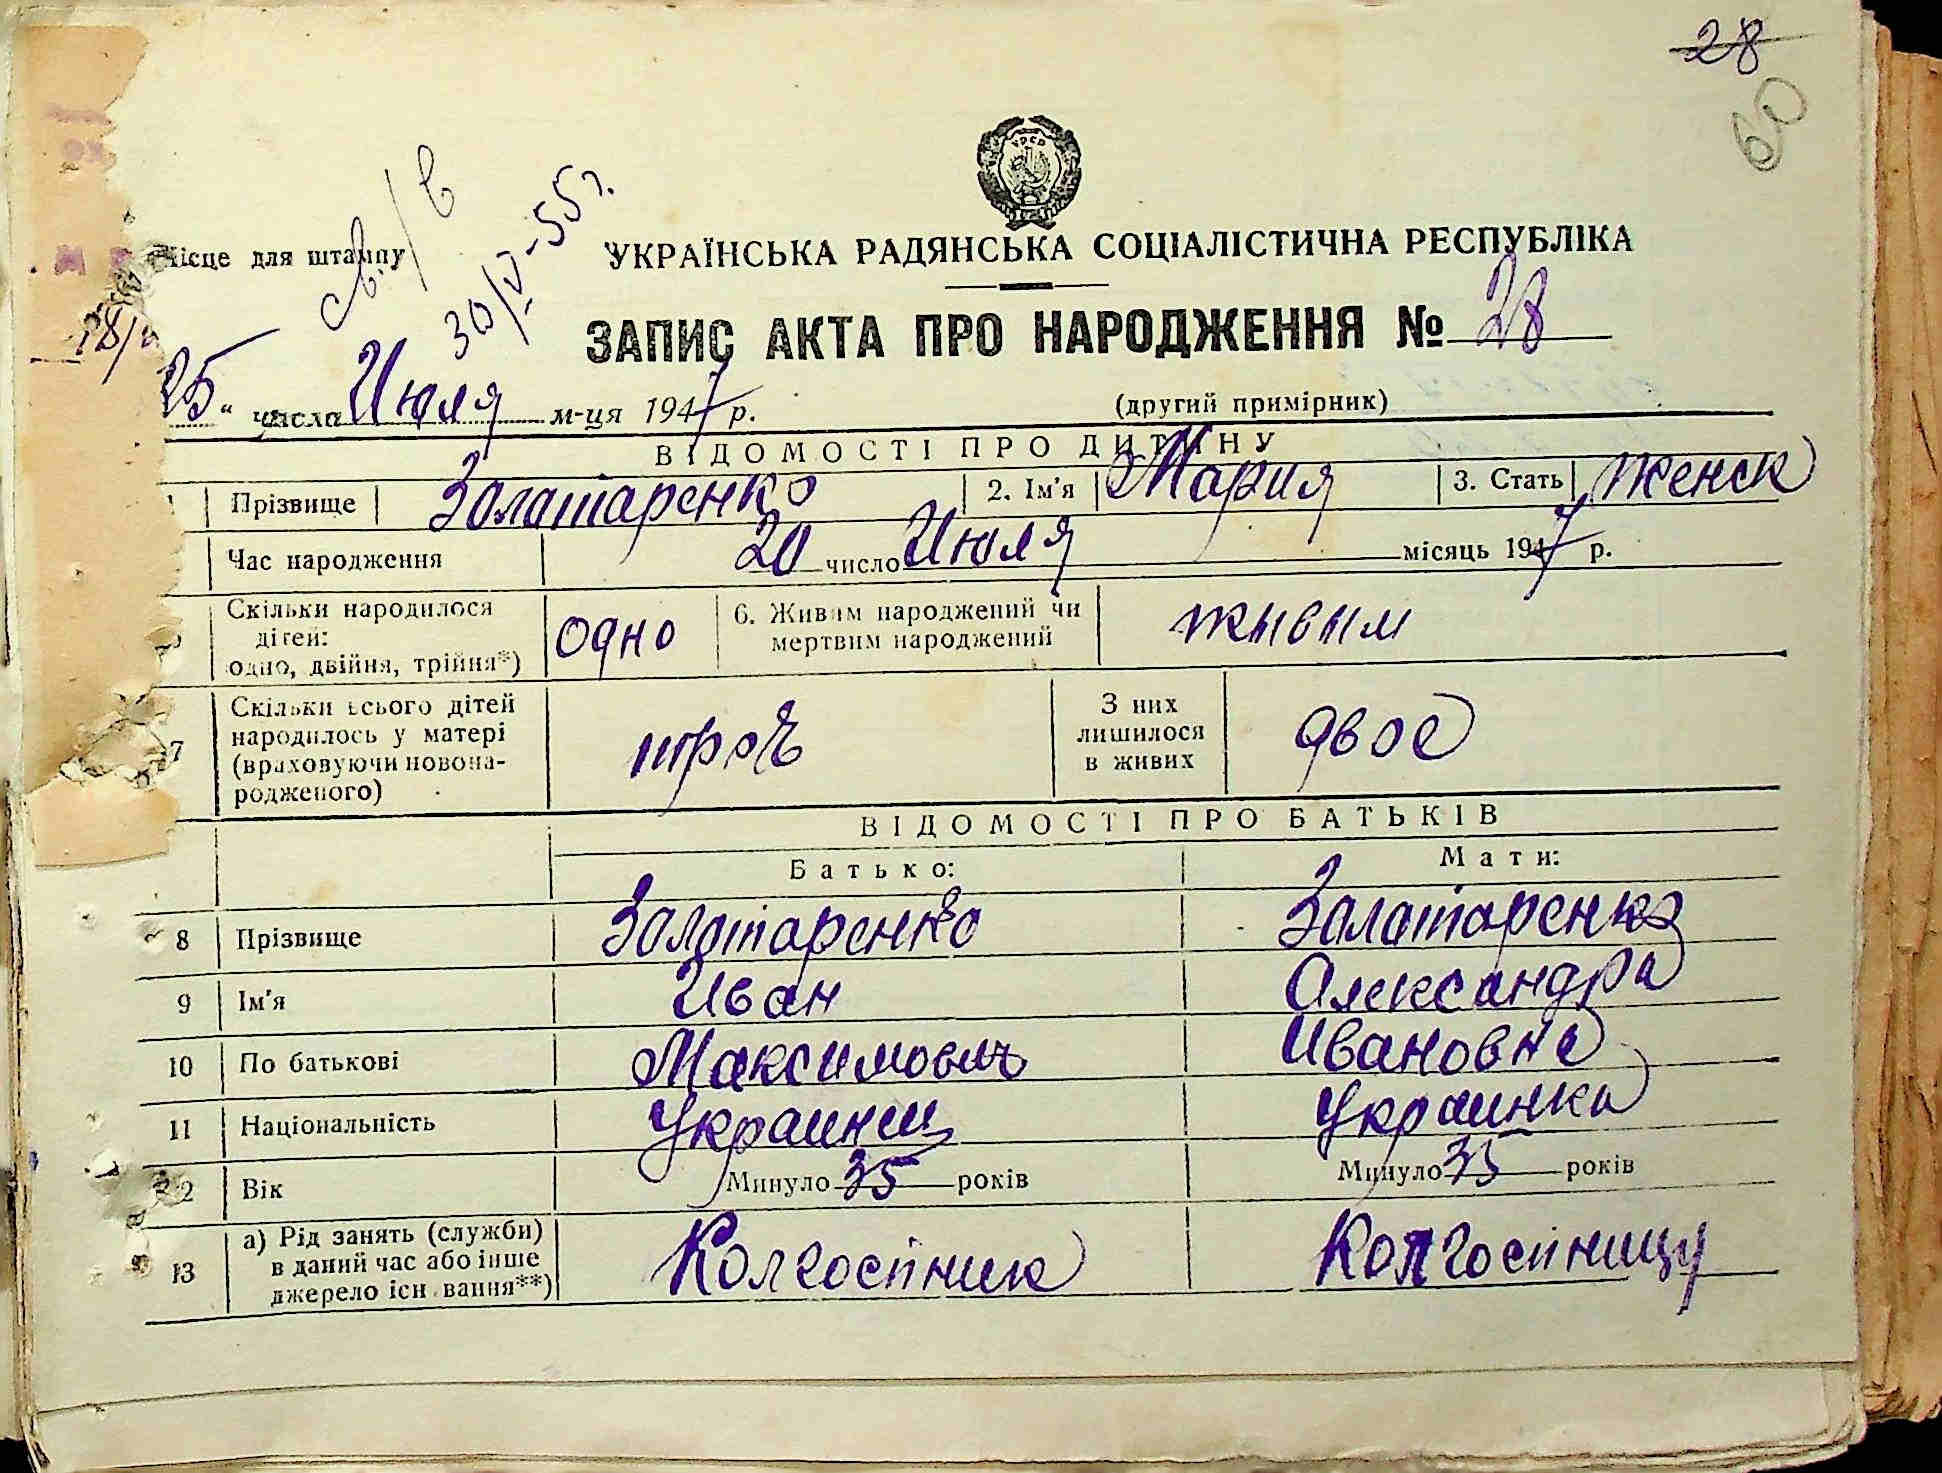 28
60
УРСР
св./в
30/V-55 г.
Місце для штампу
УКРАЇНСЬКА РАДЯНСЬКА СОЦІАЛІСТИЧНА РЕСПУБЛІКА
ЗАПИС АКТА ПРО НАРОДЖЕННЯ № 28
25 " числа Июля м-ця 1947 р.
(другий примірник)
ВІДОМОСТІ ПРО ДИТИНУ
1 Прізвище Залатаренко 2. Ім'я Мария 3. Стать женск
Час народження 20 число Июля місяць 1947 р.
Скільки народилося
дітей:
одно, двійня, трійня*)
одно
6. Живим народжений чи
мертвим народжений
живим
7 Скільки всього дітей
народилось у матері
(враховуючи новона-
родженого)
З них
лишилося
в живих
двое
ВІДОМОСТІ ПРО БАТЬКІВ
Батько: Мати:
8 Прізвище Залатаренко Залатаренко
9 Ім'я Иван Александра
10 По батькові Максимович Ивановна
11 Національність Украинец Украинка
12 Вік Минуло 35 років Минуло 35 років
13 а) Рід занять (служби)
в даний час або інше
джерело існування**)
Колгоспник Колгоспницу